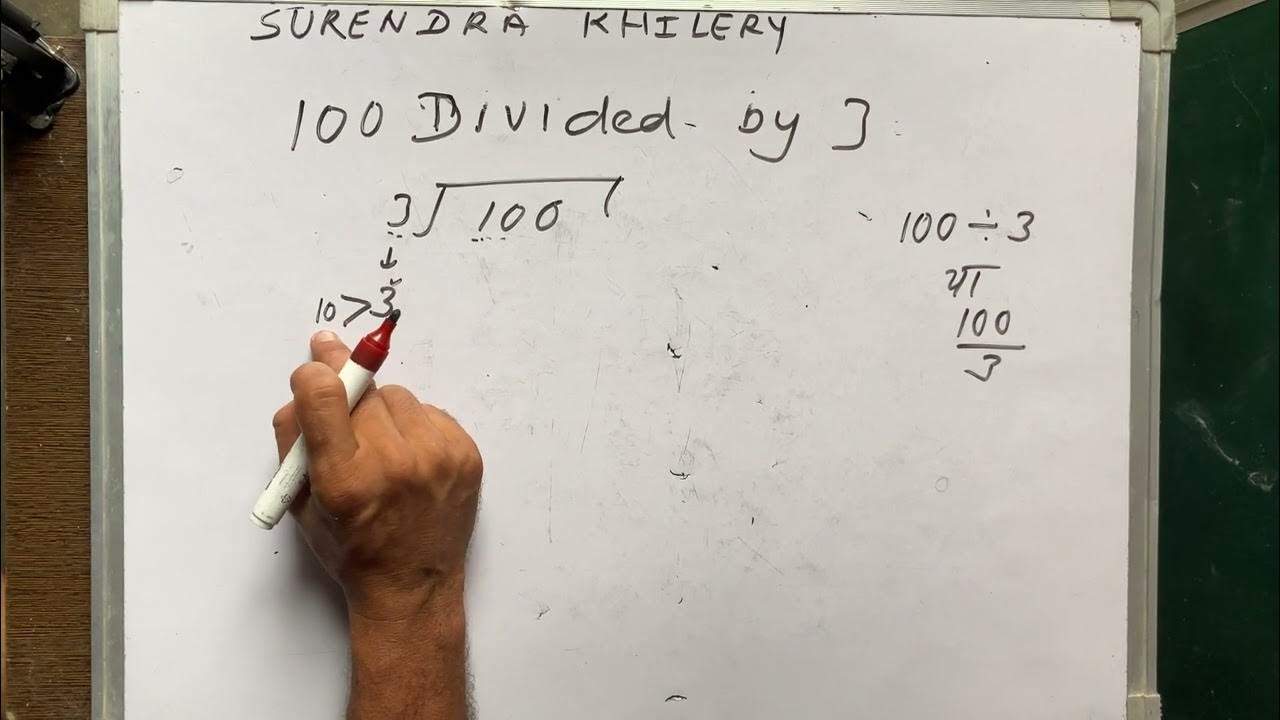 SURENDRA KHILERY
100 Divided by 3
3 100
10 > 3
100 ÷ 3
या
100
3